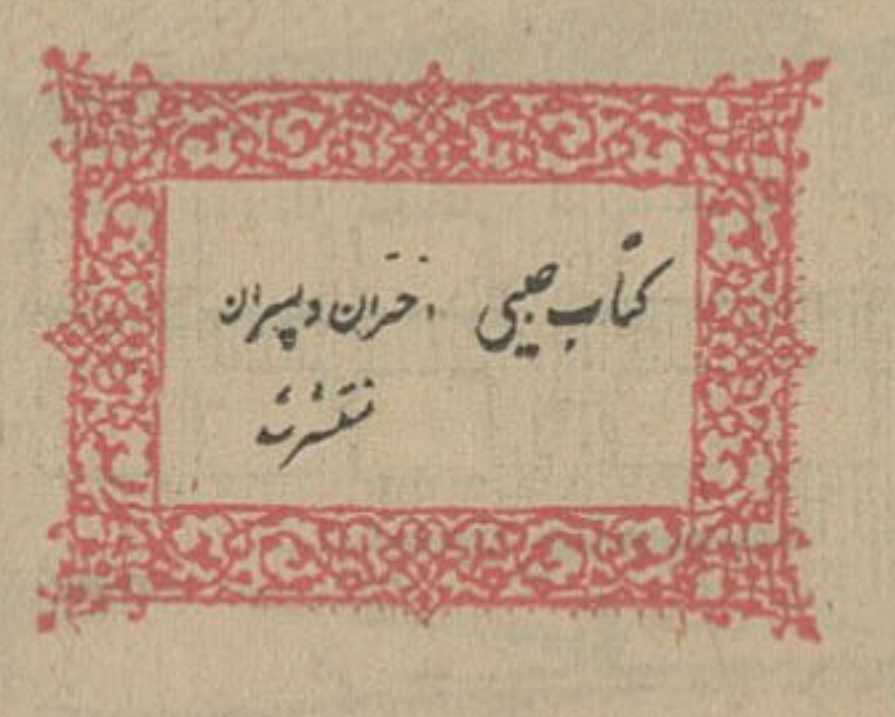 کتاب جیبی دختران و پسران
منتشر شد